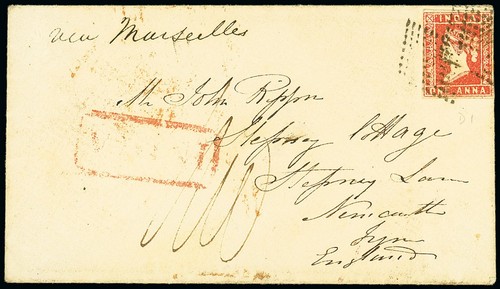 via Marseilles
INDIA
ONE ANNA
Mr John Rippon
Stepney Cottage
Stepney Lane
Newcastle
Tyne
England
D1